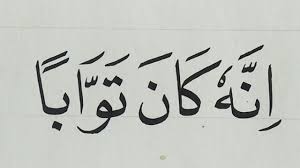 اِنَّهٗ كَانَ تَوَّابًا